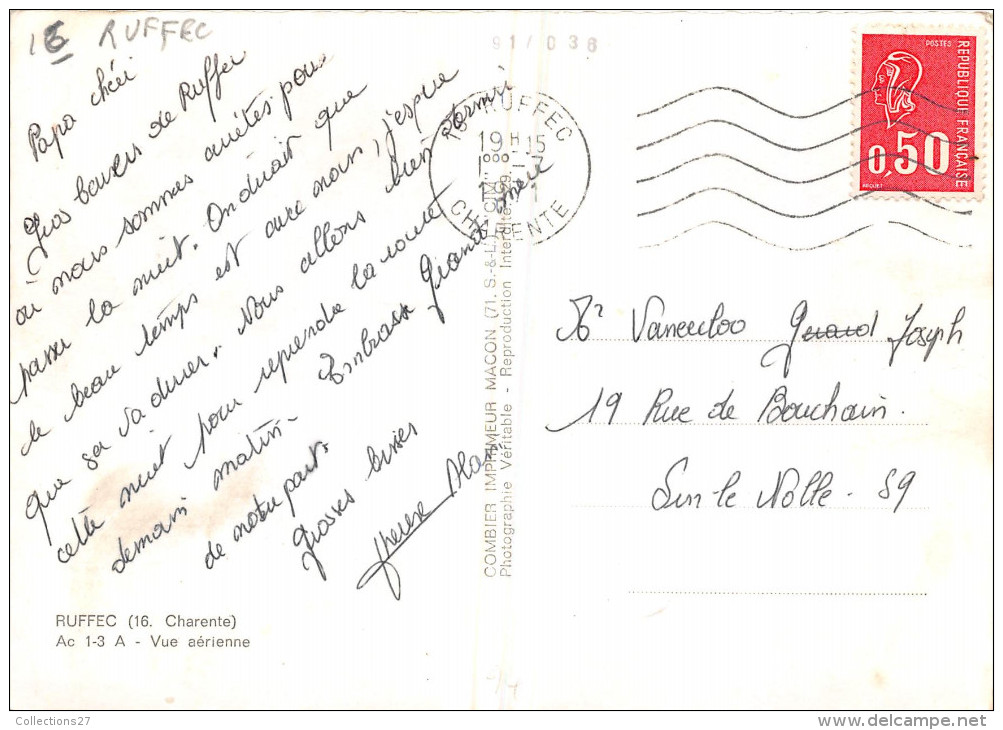 16 RUFFEC
91/038
Papa chéri
Gros baisers de Ruffec
où nous sommes arrêtés pour
passer la nuit. On dirait que
le beau temps est avec nous, j'espère
que sa va durer. Nous allons bien dormir
cette nuit pour reprendre la route
demain matin. Embrasse Grand mère
de notre part.
Grosses bises
RUFFEC (16. Charente)
Ac 1-3 A - Vue aérienne
COMBIER IMPRIMEUR MACON (71. S.-&-L.)
Photographie Véritable - Reproduction Interdite
RUFFEC
19 H 15
CHARENTE
POSTES
REPUBLIQUE FRANÇAISE
0,50
Mr Vaneuloo Gerard Joseph
19 Rue de Bouchain.
59
Collections27
www.delcampe.net